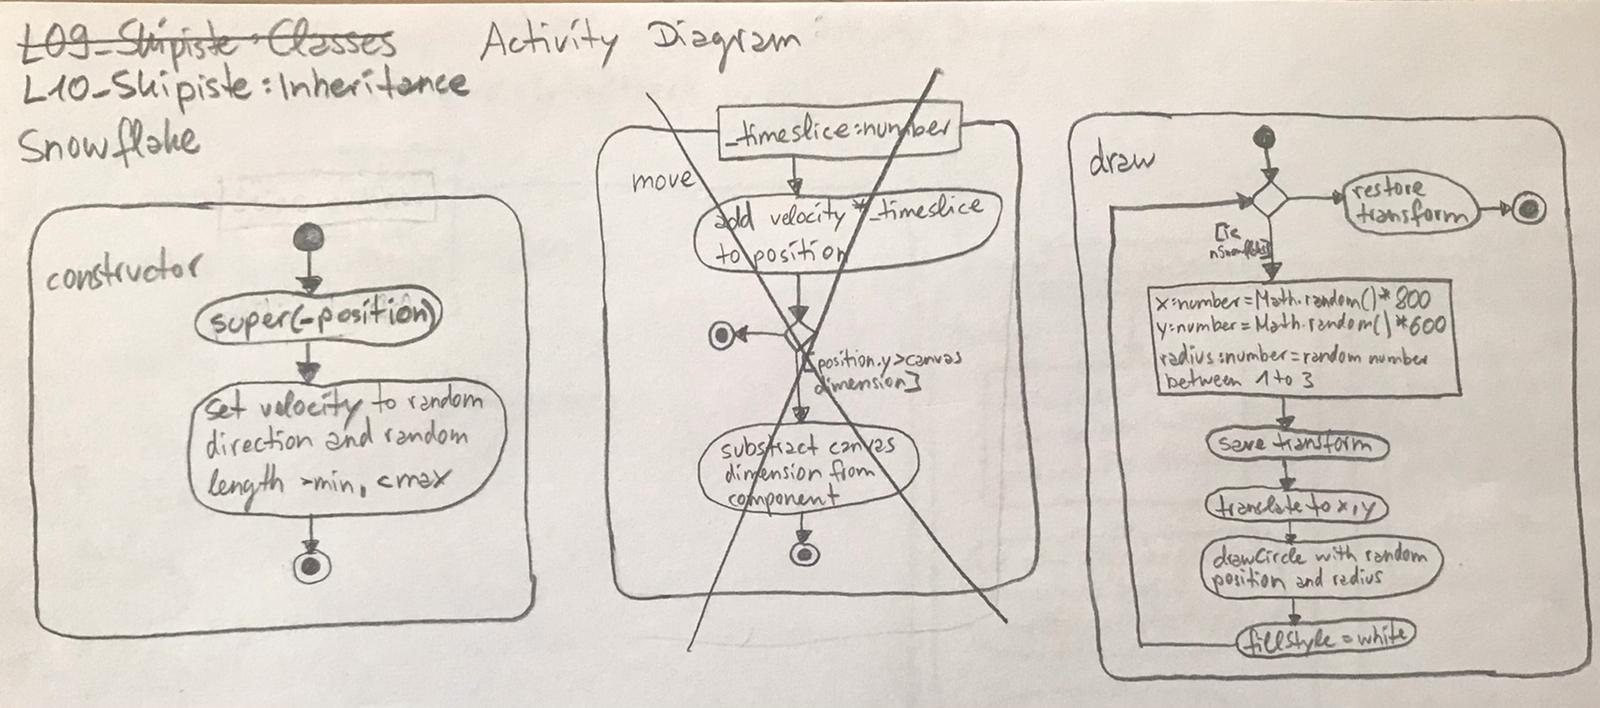 L09_Skipiste: Classes
Activity Diagram
L10_Skipiste: Inheritance
Snowflake
constructor
super(_position)
set velocity to random
direction and random
length >min, <max
_timeslice:number
move
add velocity * _timeslice
to position
[position.y>canvas
dimension]
substract canvas
dimension from
component
draw
restore
transform
x:number=Math.random()*800
y:number=Math.random()*600
radius:number=random number
between 1 to 3
save transform
translate to x,y
drawCircle with random
position and radius
fillStyle = white